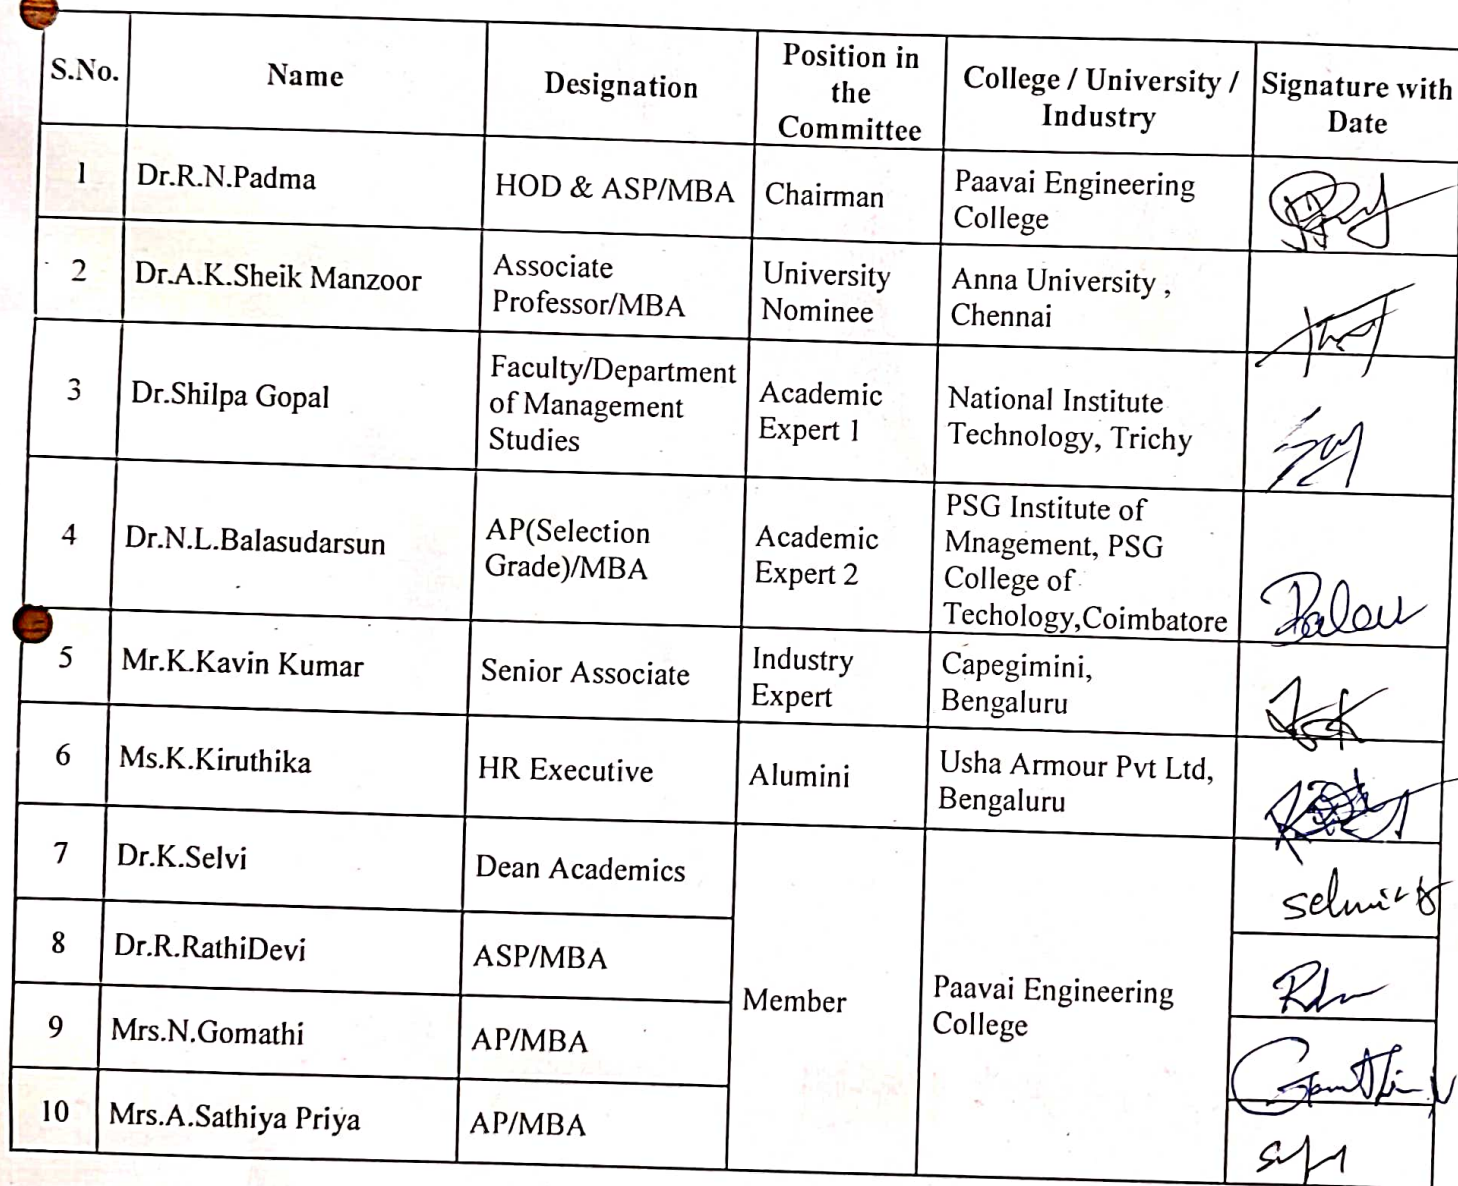 S.No.
Name
Designation
Position in
the
Committee
College / University /
Industry
Signature with
Date
1
Dr.R.N.Padma
HOD & ASP/MBA
Chairman
Paavai Engineering
College
2
Dr.A.K.Sheik Manzoor
Associate
Professor/MBA
University
Nominee
Anna University ,
Chennai
3
Dr.Shilpa Gopal
Faculty/Department
of Management
Studies
Academic
Expert 1
National Institute
Technology, Trichy
4
Dr.N.L.Balasudarsun
AP(Selection
Grade)/MBA
Academic
Expert 2
PSG Institute of
Mnagement, PSG
College of
Techology,Coimbatore
5
Mr.K.Kavin Kumar
Senior Associate
Industry
Expert
Capegimini,
Bengaluru
6
Ms.K.Kiruthika
HR Executive
Alumini
Usha Armour Pvt Ltd,
Bengaluru
7
Dr.K.Selvi
Dean Academics
Member
Paavai Engineering
College
8
Dr.R.RathiDevi
ASP/MBA
9
Mrs.N.Gomathi
AP/MBA
10
Mrs.A.Sathiya Priya
AP/MBA